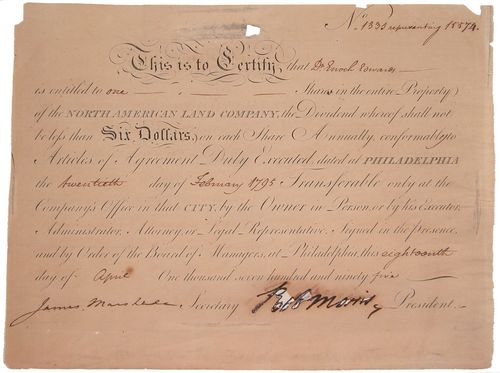 No. 1330 representing 15574.
This is to Certify, that Dr Enoch Edwards
is entitled to one Share in the entire Property
of the NORTH AMERICAN LAND COMPANY, the Dividend whereof shall not
be less than Six Dollars, on each Share Annually, conformably to
Articles of Agreement Duly Executed, dated at PHILADELPHIA
the twentieth day of February 1795 Transferable only at the
Company's Office in that CITY, by the Owner in Person, or by his Executor,
Administrator, Attorney, or Legal Representative. Signed in the presence,
and by Order of the Board of Managers, at Philadelphia, this eighteenth
day of April One thousand seven hundred and ninety five
James Marshall Secretary Rob Morris President.